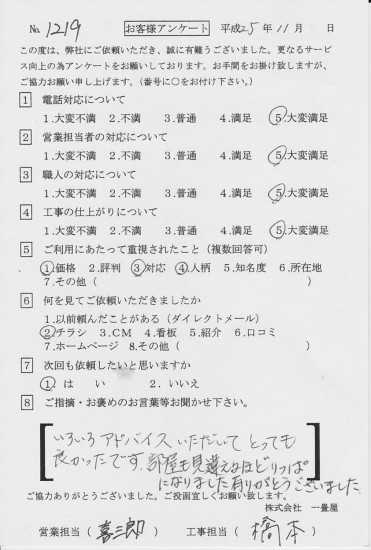 No. 1219 お客様アンケート 平成25年11月 日
この度は、弊社にご依頼いただき、誠に有難うございました。更なるサービ
ス向上の為アンケートをお願いしております。お手間をお掛け致しますが、
ご協力お願い申し上げます。(番号に○をお付け下さい。)
1 電話対応について
1.大変不満 2.不満 3.普通 4.満足 5.大変満足
2 営業担当者の対応について
1.大変不満 2.不満 3.普通 4.満足 5.大変満足
3 職人の対応について
1.大変不満 2.不満 3.普通 4.満足 5.大変満足
4 工事の仕上がりについて
1.大変不満 2.不満 3.普通 4.満足 5.大変満足
5 ご利用にあたって重視されたこと(複数回答可)
1.価格 2.評判 3.対応 4.人柄 5.知名度 6.所在地
7.その他(       )
6 何を見てご依頼いただきましたか
1.以前頼んだことがある(ダイレクトメール)
2.チラシ 3.CM 4.看板 5.紹介 6.口コミ
7.ホームページ 8.その他(       )
7 次回も依頼したいと思いますか
1. は い 2. いいえ
8 ご指摘・お褒めのお言葉等お聞かせ下さい。
いろいろアドバイスいただいてとっても
良かったです。部屋も見違えるほどりっぱ
になりました有りがとうございました
ご協力ありがとうございました。ご投函宜しくお願い致します。
株式会社 一畳屋
営業担当(喜三郎) 工事担当(橋本)